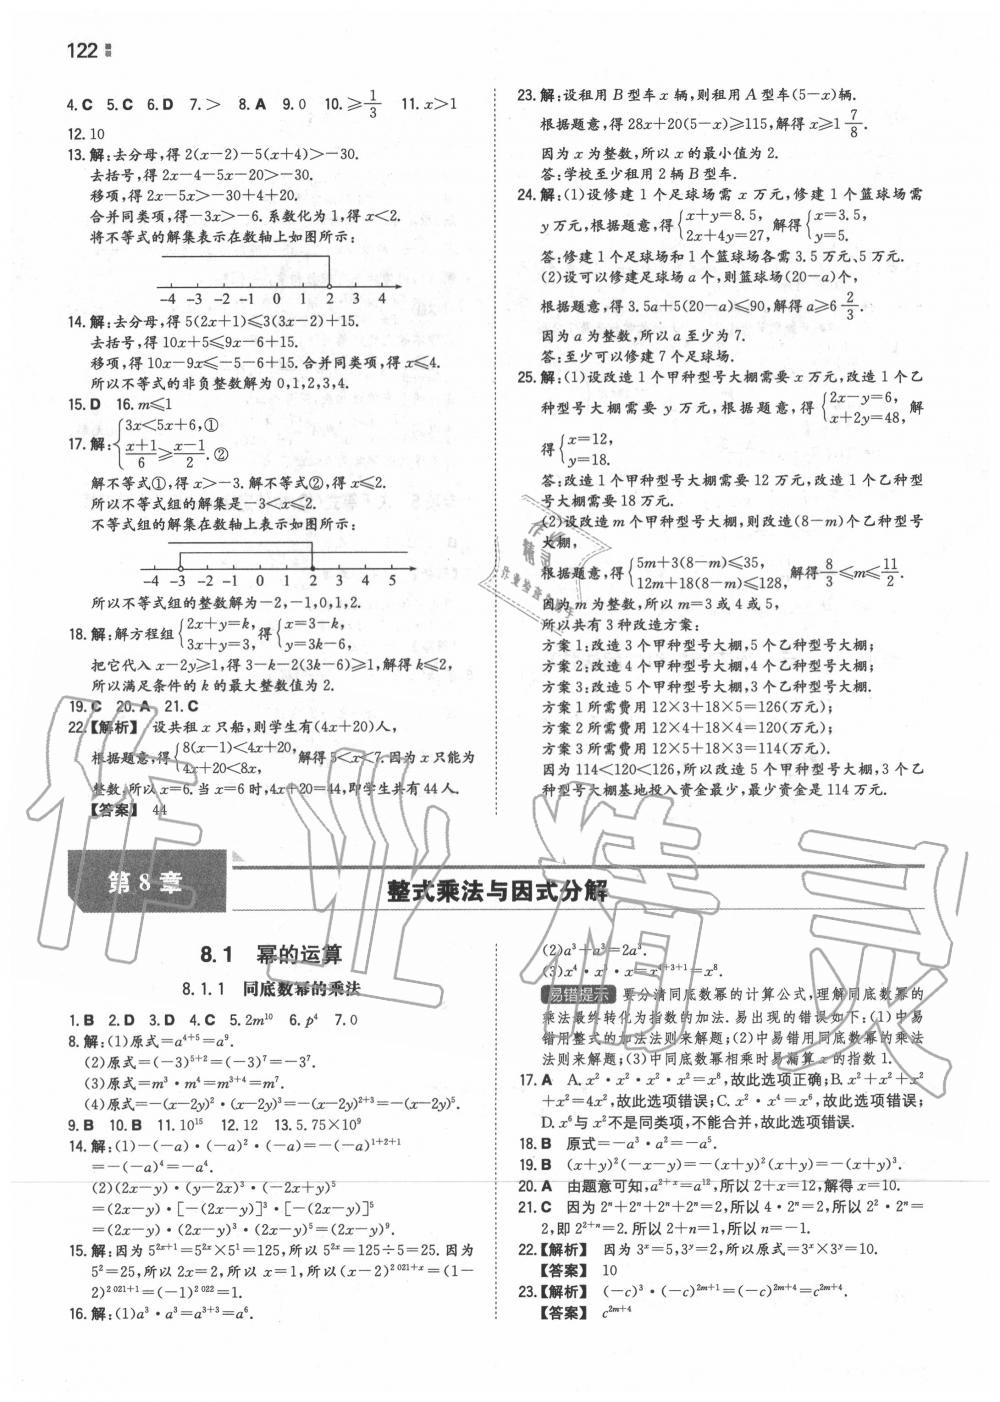 122
4.C 5.C 6.D 7.> 8.A 9.0 10.≥1/3 11.x>1
12.10
13.解:去分母,得2(x-2)-5(x+4)>-30.
去括号,得2x-4-5x-20>-30.
移项,得2x-5x>-30+4+20.
合并同类项,得-3x>-6.系数化为1,得x<2.
将不等式的解集表示在数轴上如图所示:
-4 -3 -2 -1 0 1 2 3 4
14.解:去分母,得5(2x+1)≤3(3x-2)+15.
去括号,得10x+5≤9x-6+15.
移项,得10x-9x≤-5-6+15.合并同类项,得x≤4.
所以不等式的非负整数解为0,1,2,3,4.
15.D 16.m≤1
17.解:{3x<5x+6,① (x+1)/6≥(x-1)/2.②
解不等式①,得x>-3.解不等式②,得x≤2.
所以不等式组的解集是-3<x≤2.
不等式组的解集在数轴上表示如图所示:
-4 -3 -2 -1 0 1 2 3 4 5
所以不等式组的整数解为-2,-1,0,1,2.
18.解:解方程组{2x+y=k, 3x+y=3,得{x=3-k, y=3k-6,
把它代入x-2y≥1,得3-k-2(3k-6)≥1,解得k≤2,
所以满足条件的k的最大整数值为2.
19.C 20.A 21.C
22.【解析】 设共租x只船,则学生有(4x+20)人,
根据题意,得{8(x-1)<4x+20, 4x+20<8x,解得5<x<7.因为x只能为
整数,所以x=6.当x=6时,4x+20=44,即学生共有44人.
【答案】 44
23.解:设租用B型车x辆,则租用A型车(5-x)辆.
根据题意,得28x+20(5-x)≥115,解得x≥1 7/8.
因为x为整数,所以x的最小值为2.
答:学校至少租用2辆B型车.
24.解:(1)设修建1个足球场需x万元,修建1个篮球场需
y万元,根据题意,得{x+y=8.5, 2x+4y=27,解得{x=3.5, y=5.
答:修建1个足球场和1个篮球场各需3.5万元、5万元.
(2)设可以修建足球场a个,则篮球场(20-a)个,
根据题意,得3.5a+5(20-a)≤90,解得a≥6 2/3.
因为a为整数,所以a至少为7.
答:至少可以修建7个足球场.
25.解:(1)设改造1个甲种型号大棚需要x万元,改造1个乙
种型号大棚需要y万元,根据题意,得{2x-y=6, x+2y=48,解
得{x=12, y=18.
答:改造1个甲种型号大棚需要12万元,改造1个乙种型
号大棚需要18万元.
(2)设改造m个甲种型号大棚,则改造(8-m)个乙种型号
大棚,
根据题意,得{5m+3(8-m)≤35, 12m+18(8-m)≤128,解得8/3≤m≤11/2.
因为m为整数,所以m=3或4或5,
所以共有3种改造方案:
方案1:改造3个甲种型号大棚,5个乙种型号大棚;
方案2:改造4个甲种型号大棚,4个乙种型号大棚;
方案3:改造5个甲种型号大棚,3个乙种型号大棚.
方案1所需费用12×3+18×5=126(万元);
方案2所需费用12×4+18×4=120(万元);
方案3所需费用12×5+18×3=114(万元).
因为114<120<126,所以改造5个甲种型号大棚,3个乙
种型号大棚基地投入资金最少,最少资金是114万元.
第8章 整式乘法与因式分解
8.1 幂的运算
8.1.1 同底数幂的乘法
1.B 2.D 3.D 4.C 5.2m¹⁰ 6.p⁴ 7.0
8.解:(1)原式=a⁴⁺⁵=a⁹.
(2)原式=(-3)⁵⁺²=(-3)⁷=-3⁷.
(3)原式=m³·m⁴=m³⁺⁴=m⁷.
(4)原式=-(x-2y)²·(x-2y)³=-(x-2y)²⁺³=-(x-2y)⁵.
9.B 10.B 11.10¹⁵ 12.12 13.5.75×10⁹
14.解:(1)-(-a)·(-a)²·(-a)=-(-a)¹⁺²⁺¹
=-(-a)⁴=-a⁴.
(2)(2x-y)·(y-2x)³·(-2x+y)⁵
=(2x-y)·[-(2x-y)]³·[-(2x-y)]⁵
=(2x-y)·(2x-y)³·(2x-y)⁵=(2x-y)⁹.
15.解:因为5²ˣ⁺¹=5²ˣ×5¹=125,所以5²ˣ=125÷5=25.因为
5²=25,所以2x=2,所以x=1,所以(x-2)²⁰²¹⁺ˣ=(1-
2)²⁰²¹⁺¹=(-1)²⁰²²=1.
16.解:(1)a³·a³=a³⁺³=a⁶.
(2)a³+a³=2a³.
(3)x⁴·x³·x=x⁴⁺³⁺¹=x⁸.
易错提示 要分清同底数幂的计算公式,理解同底数幂的
乘法最终转化为指数的加法.易出现的错误如下:(1)中易
错用整式的加法法则来解题;(2)中易错用同底数幂的乘法
法则来解题;(3)中同底数幂相乘时易漏算x的指数1.
17.A A.x²·x²·x²·x²=x⁸,故此选项正确;B.x²+x²+x²
+x²=4x²,故此选项错误;C.x²·x⁴=x⁶,故此选项错误;
D.x⁶与x²不是同类项,不能合并,故此选项错误.
18.B 原式=-a³·a²=-a⁵.
19.B (x+y)²(-x-y)=-(x+y)²(x+y)=-(x+y)³.
20.A 由题意可知,a²⁺ˣ=a¹²,所以2+x=12,解得x=10.
21.C 因为2ⁿ+2ⁿ+2ⁿ+2ⁿ=2,所以4·2ⁿ=2,所以2²·2ⁿ=
2,即2²⁺ⁿ=2.所以2+n=1,所以n=-1.
22.【解析】 因为3ˣ=5,3ʸ=2,所以原式=3ˣ×3ʸ=10.
【答案】 10
23.【解析】 (-c)³·(-c)²ᵐ⁺¹=(-c)²ᵐ⁺⁴=c²ᵐ⁺⁴.
【答案】 c²ᵐ⁺⁴
作业精灵